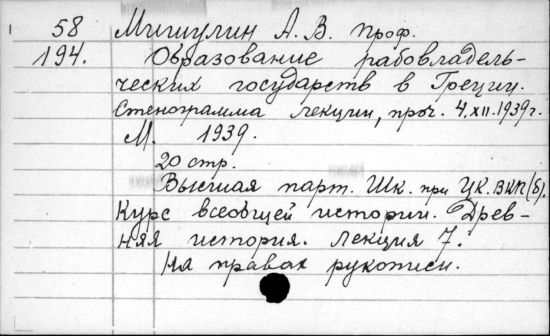 58 Мишулин А. В. проф.
194. Образование рабовладель-
ческих государств в Греции.
Стенограмма лекции, проч. 4.XII.1939г.
М. 1939.
20 стр.
Высшая парт. Шк. при ЦК.ВКП(б).
Курс всеобщей истории. Древ-
няя история. Лекция 7.
На правах рукописи.